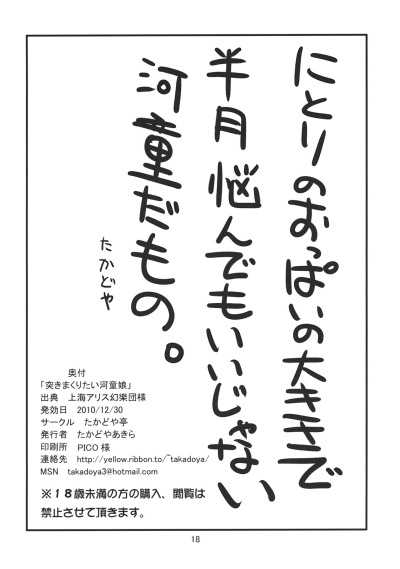 にとりのおっぱいの大きさで
半月悩んでもいいじゃない
河童だもの。
たかどや
奥付
「突きまくりたい河童娘」
出典　上海アリス幻樂団様
発効日　2010/12/30
サークル　たかどや亭
発行者　たかどやあきら
印刷所　PICO 様
連絡先　http://yellow.ribbon.to/~takadoya/
MSN　takadoya3@hotmail.com
※１８歳未満の方の購入、閲覧は
禁止させて頂きます。
18